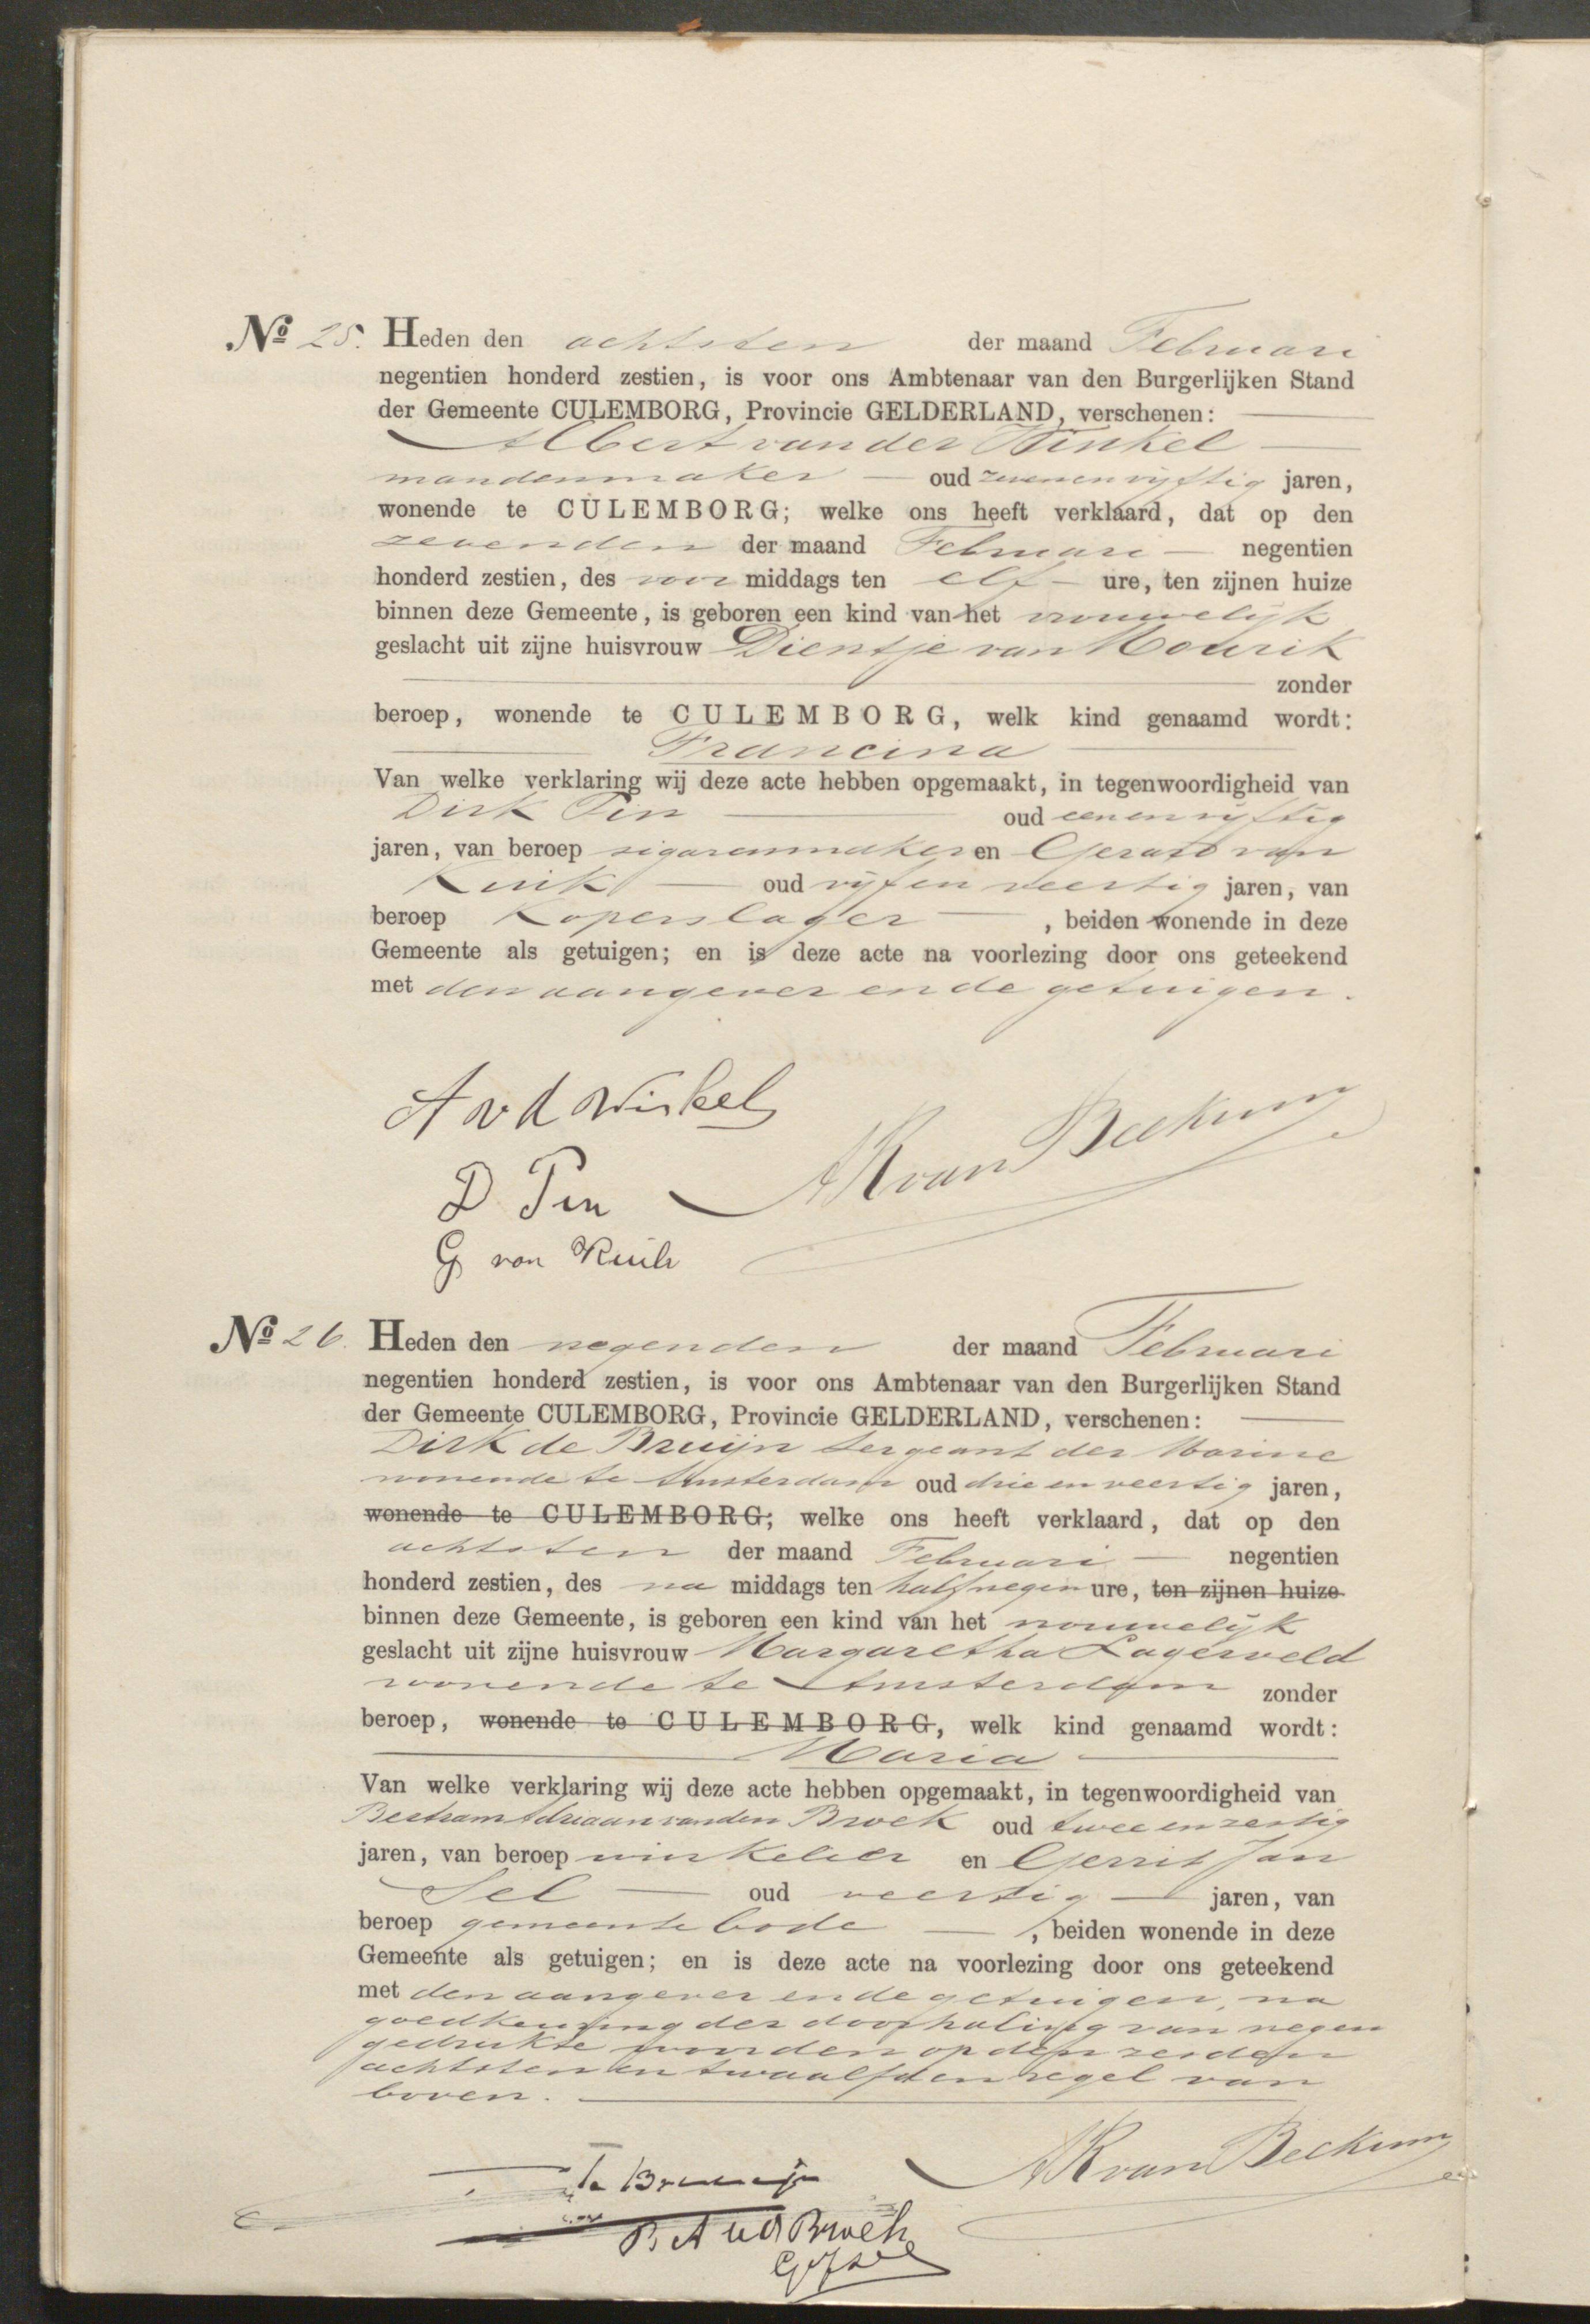 No 25. Heden den achtsten der maand Februari
negentien honderd zestien, is voor ons Ambtenaar van den Burgerlijken Stand
der Gemeente CULEMBORG, Provincie GELDERLAND, verschenen:
Albert van der Winkel
mandenmaker oud zevenenvijftig jaren,
wonende te CULEMBORG; welke ons heeft verklaard, dat op den
zevenden der maand Februari negentien
honderd zestien, des voor middags ten elf ure, ten zijnen huize
binnen deze Gemeente, is geboren een kind van het vrouwelijk
geslacht uit zijne huisvrouw Dientje van Mourik
zonder
beroep, wonende te CULEMBORG, welk kind genaamd wordt:
Francina
Van welke verklaring wij deze acte hebben opgemaakt, in tegenwoordigheid van
Dirk Pin oud eenenvijftig
jaren, van beroep sigarenmaker en Gerard van
Kuik oud vijfenveertig jaren, van
beroep Koperslager, beiden wonende in deze
Gemeente als getuigen; en is deze acte na voorlezing door ons geteekend
met den aangever en de getuigen.
A v d Winkel
D Pin AK van Beckum
G van Kuik
No 26. Heden den negenden der maand Februari
negentien honderd zestien, is voor ons Ambtenaar van den Burgerlijken Stand
der Gemeente CULEMBORG, Provincie GELDERLAND, verschenen:
Dirk de Bruijn Sergeant der Marine
wonende te Amsterdam oud drieenveertig jaren,
wonende te CULEMBORG; welke ons heeft verklaard, dat op den
achtsten der maand Februari negentien
honderd zestien, des na middags ten halfnegen ure, ten zijnen huize
binnen deze Gemeente, is geboren een kind van het vrouwelijk
geslacht uit zijne huisvrouw Margaretha Lagerveld
wonende te Amsterdam zonder
beroep, wonende te CULEMBORG, welk kind genaamd wordt:
Maria
Van welke verklaring wij deze acte hebben opgemaakt, in tegenwoordigheid van
Bertram Adriaan van den Broek oud tweeenzestig
jaren, van beroep winkelier en Gerrit Jan
Sel oud veertig jaren, van
beroep gemeentebode, beiden wonende in deze
Gemeente als getuigen; en is deze acte na voorlezing door ons geteekend
met den aangever en de getuigen, na
goedkeuring der doorhaling van negen
gedrukte woorden op den zesden
achtsten en twaalfden regel van
boven.
de Bruijn AK van Beckum
B A vd Broek
GJ Sel